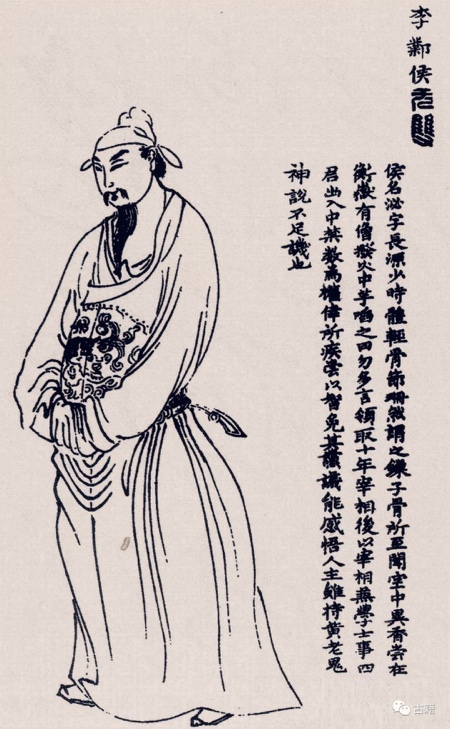 李鄴侯
无雙
侯名泌字長源少時體輕骨節珊然謂之鎖子骨所至聞空中異香嘗在
衡嶽有僧撥火中芋啗之曰勿多言領取十年宰相後以宰相兼學士事四
君出入中禁數為權倖所疾常以智免其讜議能感悟人主雖持黃老鬼
神說不足譏也